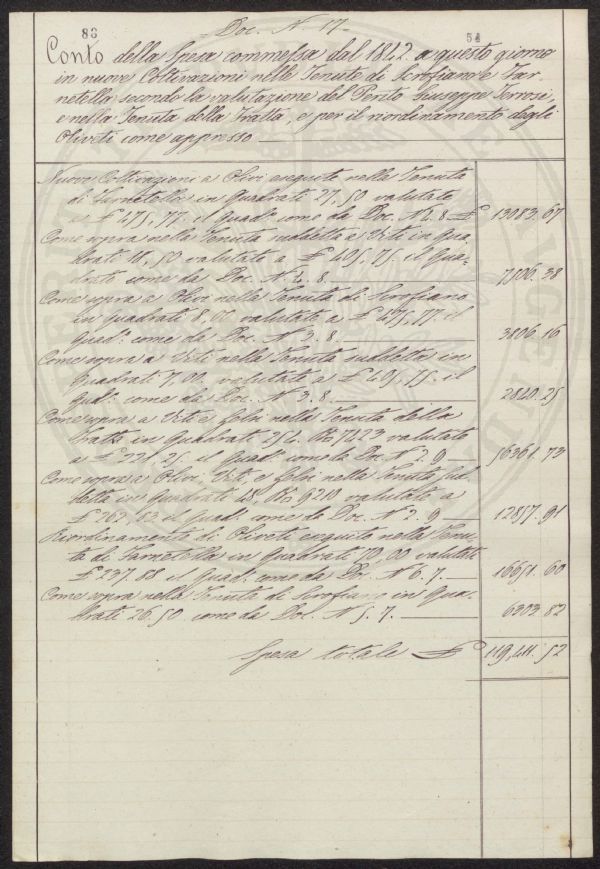 83
Doc. N. 17
54
Conto della Spesa commessa dal 1842 a questo giorno
in nuove Coltivazioni nelle Tenute di Scrofiano e Far-
netella secondo la valutazione del Perito Giuseppe Terrosi,
e nella Tenuta della Fratta, e per il riordinamento degli
Oliveti come appresso
Nuove Coltivazioni a Olivi eseguite nella Tenuta
di Farnetella in quadrati 27,50 valutate
a £ 475,77. il quad.º come da Doc. N. 4. 8 £ 13083. 67
Come sopra nella Tenuta suddetta a Viti in qua-
drati 18,50 valutate a £ 405,75. il qua-
drato come da Doc. N. 4. 8. 7506. 38
Come sopra a Olivi nella Tenuta di Scrofiano
in quadrati 8,00 valutate a £ 475,77. il
quad.º come da Doc. N. 3. 8. 3806. 16
Come sopra a Viti nella Tenuta suddetta in
quadrati 7,00 valutate a £ 405,75. il
quad.º come da Doc. N. 3. 8. 2840. 25
Come sopra a Viti e felci nella Tenuta della
Fratta in quadrati valutate
a £ 221,25. il quad.º come da Doc. N. 2. 9 56361. 73
Come sopra a Olivi, Viti, e felci nella Tenuta sud-
detta in quadrati 48, 9210 valutate a
£ 262,83 il quad.º come da Doc. N. 2. 9 12857. 91
Riordinamento di Oliveti eseguito nella Tenu-
ta di Farnetella in quadrati 70,00 valutate
£ 237.88 il quad.º come da Doc. N. 6. 7. 16651. 60
Come sopra nella Tenuta di Scrofiano in qua-
drati 26.50 come da Doc. N. 5. 7. 6303. 82
Spesa totale £ 119,411. 52